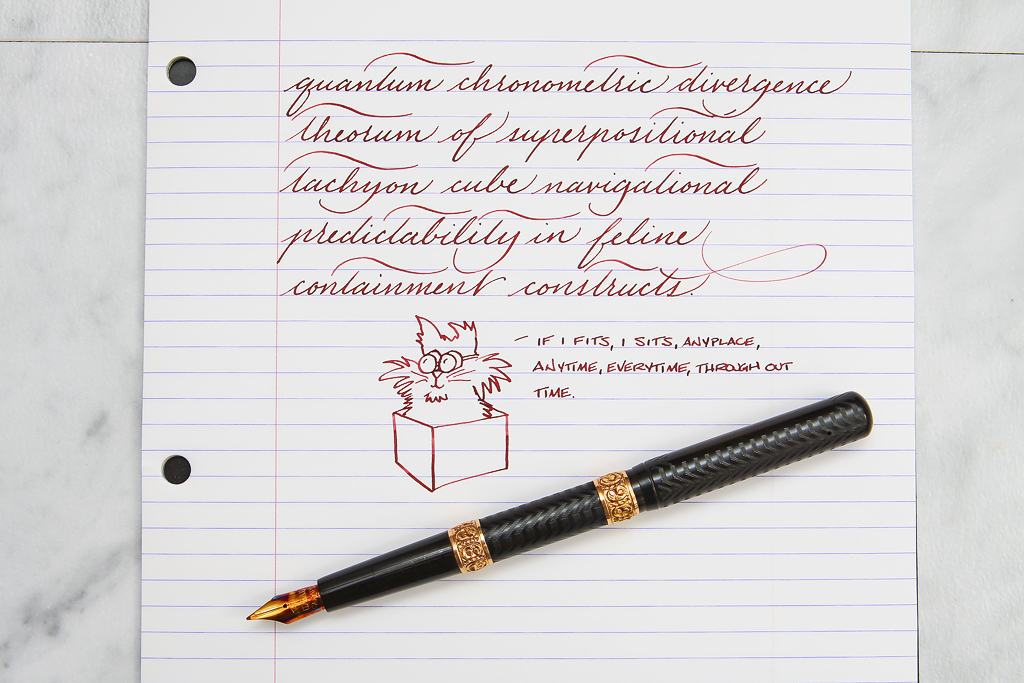 quantum chronometric divergence
theorum of superpositional
tachyon cube navigational
predictability in feline
containment constructs.
- IF I FITS, I SITS, ANYPLACE,
ANYTIME, EVERYTIME, THROUGH OUT
TIME.